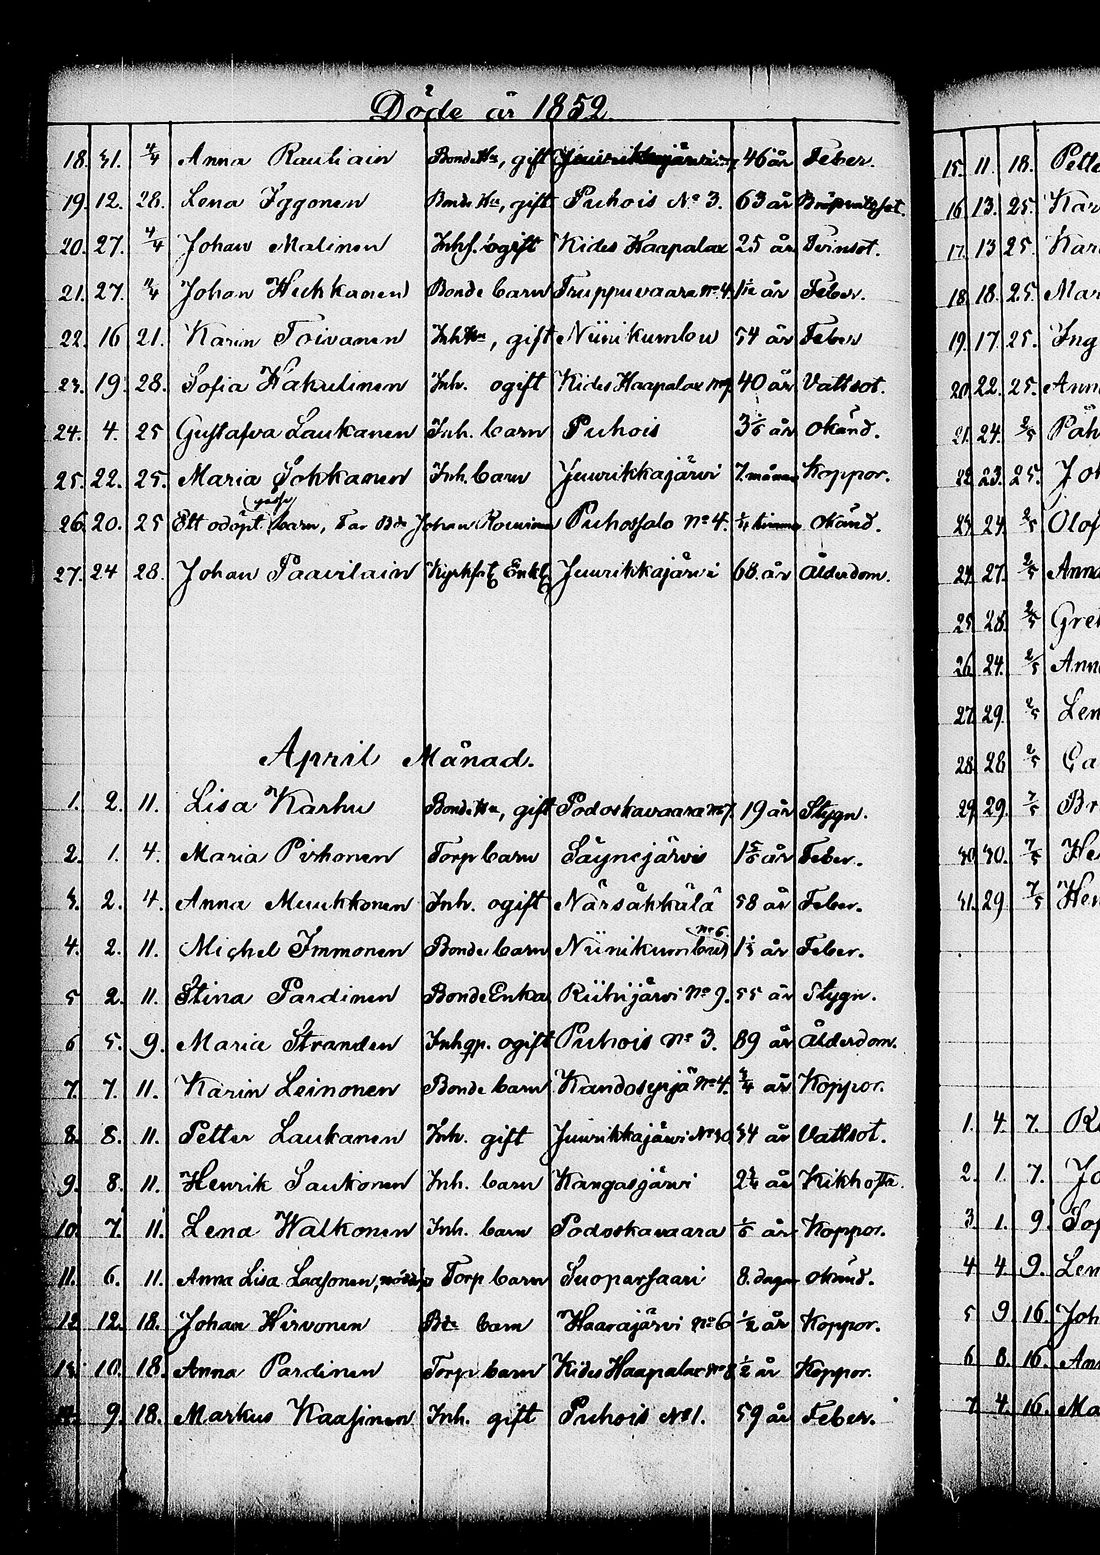 Döde år 1852
18. 31. 4/4 Anna Rautiain Bonde Hu, gift Juurikkajärvi 46 år Feber.
19. 12. 28. Lena Iggonen Bonde Hu, gift Puhois No 3. 63 år
20. 27. 4/4 Johan Malinen Inh. ogift Kides Haapalax 25 år Tvinsot.
21. 27. 4/4 Johan Hukkanen Bonde barn Truppuvaara No 4. år Feber.
22. 16 21. Karin Toivanen Inh Hu, gift Niinikumbu 54 år Feber
23. 19. 28. Sofia Hakulinen Inh. ogift Kides Haapalax 40 år Vattsot.
24. 4. 25 Gustafva Laukanen Inh. barn Puhois 3 1/6 år okänd.
25. 22. 25. Maria Sokkanen Inh. barn Juurikkajärvi 7. månar Koppor.
26. 20. 25 Ett odöpt (gosse) barn, Far Bde Johan Puhossalo No 4. 1/4 timme okänd.
27. 24 28. Johan Paavilain Enkl. Juurikkajärvi 68. år Ålderdom.
April Månad.
1. 2. 11. Lisa Karhu Bonde Hu, gift Podoskavaara No 7. 19 år Stygn.
2. 1. 4. Maria Pirhonen Torp barn Säynejärvi 1 5/6 år Feber.
3. 2. 4. Anna Muukkonen Inh. ogift Närsäkkälä 58 år Feber.
4. 2. 11. Michel Immonen Bonde barn Niinikumbu No 6. år Feber.
5 2. 11. Stina Pardinen Bonde Enka Riihijärvi No 9. 55 år Stygn.
6 5. 9. Maria Stranden ogift Puhois No 3. 89 år Ålderdom.
7. 7. 11. Karin Leinonen Bonde barn Kandosyrjä No 4. 3/4 år Koppor.
8. 8. 11. Petter Laukanen Inh. gift Juurikkajärvi No 30 34 år Vattsot.
9. 8. 11. Henrik Saukonen Inh. barn Kangasjärvi år Kikhosta.
10. 7. 11. Lena Walkonen Inh. barn Podoskavaara 1/6 år Koppor.
11. 6. 11. Anna Lisa Laasonen, nöddöp Torp barn Suoparsaari 8. dagar okänd.
12 12. 18. Johan Hirvonen Bde barn Haarajärvi No 6 1/2 år Koppor.
13. 10. 18. Anna Pardinen Torp. barn Kides Haapalax No 8 1/2 år Koppor.
14. 9. 18. Markus Kaasinen Inh. gift Puhois No 1. 59 år Feber.
15. 11. 18. Pette
16. 13. 25. Kar
17. 13 25. Kari
18. 18. 25. Mar
19. 17. 25. Ing
20. 22. 25. Ann
21. 24. 2/5 Påh
22. 23. 25. Joh
23. 24. 2/5 Olof
24. 27. 2/5 Anna
25. 28. 2/5 Gret
26. 24. 2/5 Ann
27. 29. 2/5 Len
28. 28 2/5 Ca
29. 29. 7/5 Br
30. 30. 7/5 He
31. 29 7/5 Hen
1. 4. 7. Ri
2. 1. 7. Jo
3. 1. 9. Sop
4 4 9. Len
5 9 16. Joh
6. 8. 16. Ann
7. 4. 16. Ma